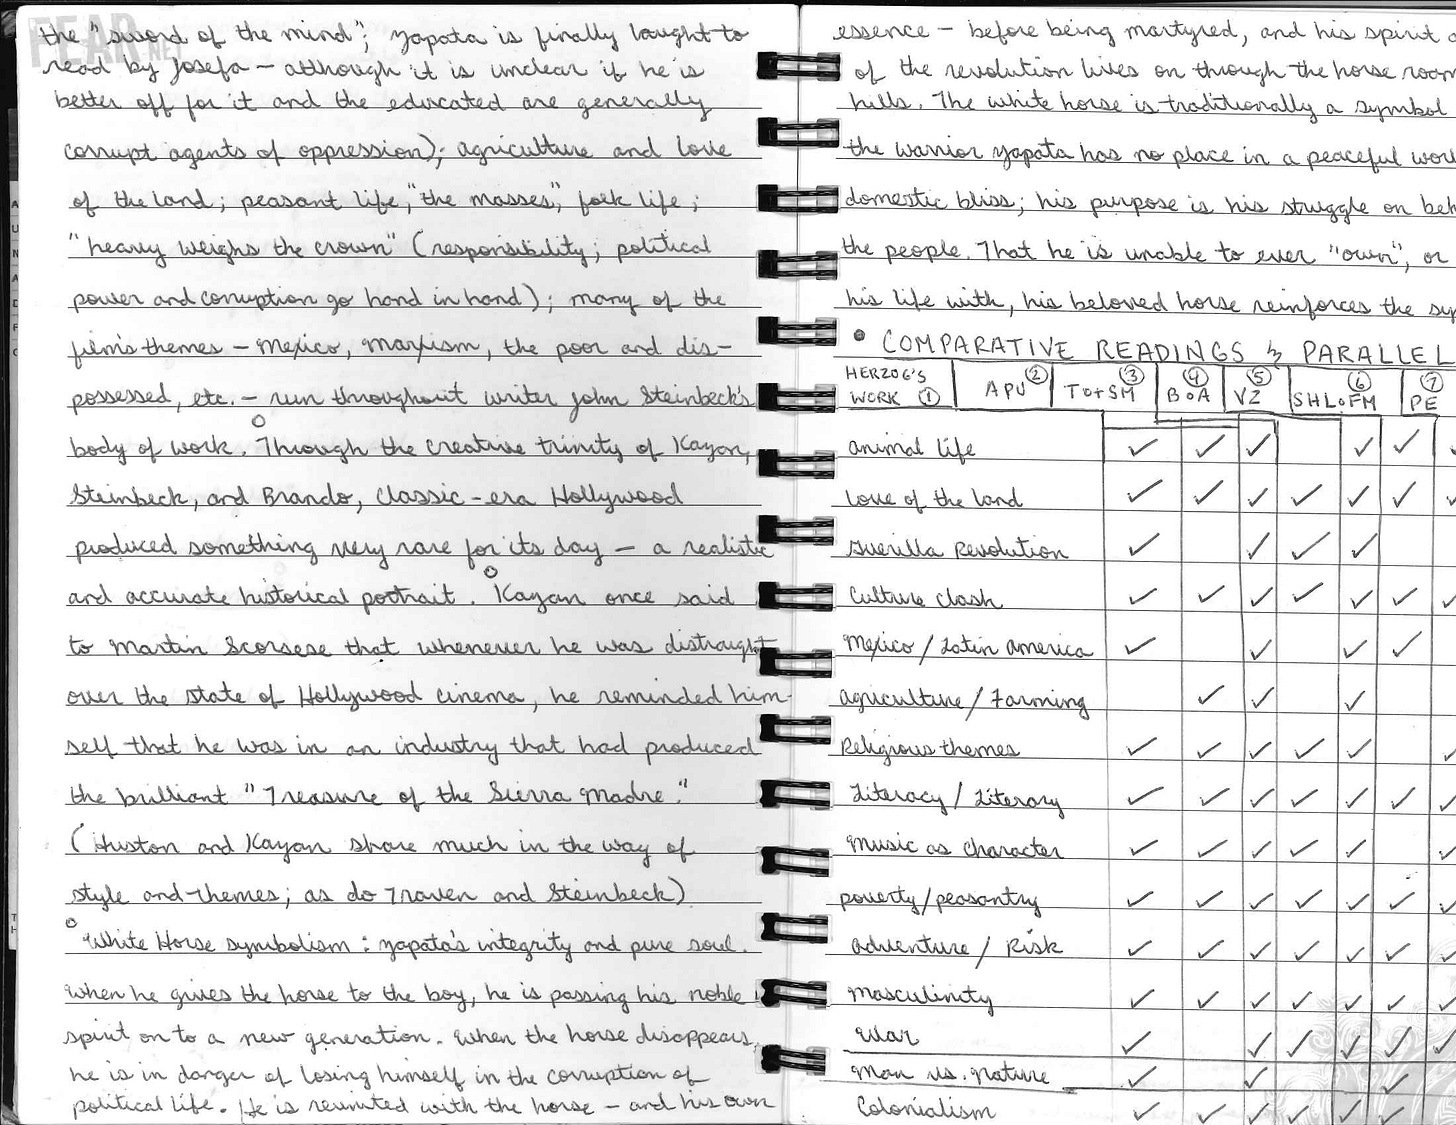 the "sword of the mind"; Zapata is finally taught to
read by Josefa — although it is unclear if he is
better off for it and the educated are generally
corrupt agents of oppression); agriculture and love
of the land; peasant life, "the masses," folk life;
"heavy weighs the crown" (responsibility; political
power and corruption go hand in hand); many of the
film's themes — Mexico, Marxism, the poor and dis-
possessed, etc. — run throughout writer John Steinbeck's
body of work. Through the creative trinity of Kazan,
Steinbeck, and Brando, classic-era Hollywood
produced something very rare for its day — a realistic
and accurate historical portrait. Kazan once said
to Martin Scorsese that whenever he was distraught
over the state of Hollywood cinema, he reminded him-
self that he was in an industry that had produced
the brilliant "Treasure of the Sierra Madre."
(Huston and Kazan share much in the way of
style and themes; as do Traven and Steinbeck)
White Horse symbolism: Zapata's integrity and pure soul.
When he gives the horse to the boy, he is passing his noble
spirit on to a new generation. When the horse disappears,
he is in danger of losing himself in the corruption of
political life. He is reunited with the horse — and his own
essence — before being martyred, and his spirit
of the revolution lives on through the horse
hills. The white horse is traditionally a symbol
the warrior Zapata has no place in a peaceful
domestic bliss; his purpose is his struggle on
the people. That he is unable to ever "own", or
his life with, his beloved horse reinforces the
• COMPARATIVE READINGS & PARALLEL
HERZOG'S WORK ① APU ② TOTSM ③ BOA ④ VZ ⑤ SHLOFM ⑥ PE ⑦
animal life ✓ ✓ ✓ ✓ ✓ ✓
love of the land ✓ ✓ ✓ ✓ ✓ ✓ ✓
Guerilla Revolution ✓ ✓ ✓ ✓
Culture clash ✓ ✓ ✓ ✓ ✓ ✓ ✓
Mexico / Latin America ✓ ✓ ✓ ✓
agriculture / Farming ✓ ✓ ✓
Religious themes ✓ ✓ ✓ ✓ ✓ ✓
Literacy / Literary ✓ ✓ ✓ ✓ ✓ ✓ ✓
Music as character ✓ ✓ ✓ ✓ ✓ ✓
poverty/peasantry ✓ ✓ ✓ ✓ ✓ ✓ ✓
adventure / Risk ✓ ✓ ✓ ✓ ✓ ✓ ✓
Masculinity ✓ ✓ ✓ ✓ ✓ ✓ ✓
War ✓ ✓ ✓ ✓ ✓ ✓
Man vs. Nature ✓ ✓ ✓
Colonialism ✓ ✓ ✓ ✓ ✓ ✓